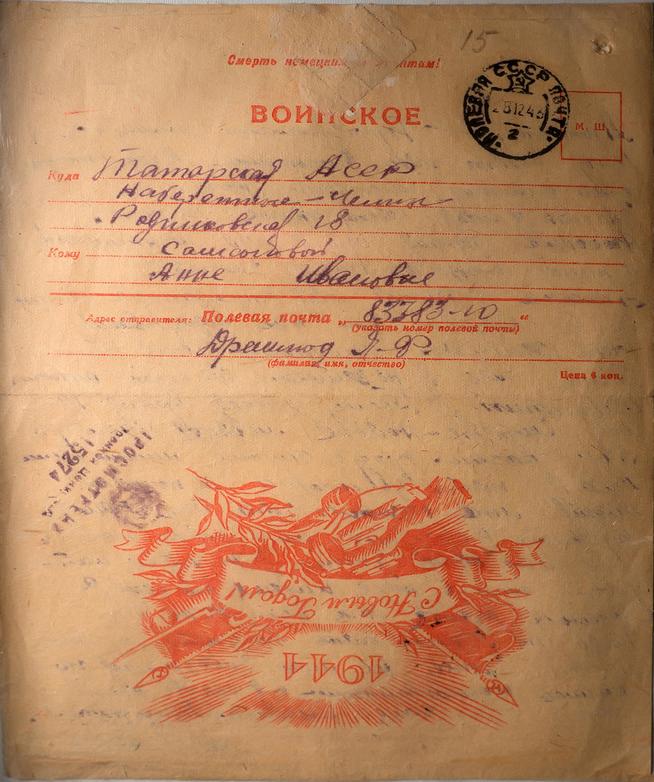 15
Смерть немецким оккупантам!
ПОЛЕВАЯ ПОЧТА СССР
28 12 43
2
ВОИНСКОЕ
М. Ш.
Куда Татарская АССР
Набережные-Челны
18
Кому
Анне Ивановне
Адрес отправителя: Полевая почта „ 83383-Ю “
(указать номер полевой почты)
(фамилия, имя, отчество)
Цена 6 коп.
ПРОСМОТРЕНО
Военной Цензурой
15274
С Новым Годом!
1944